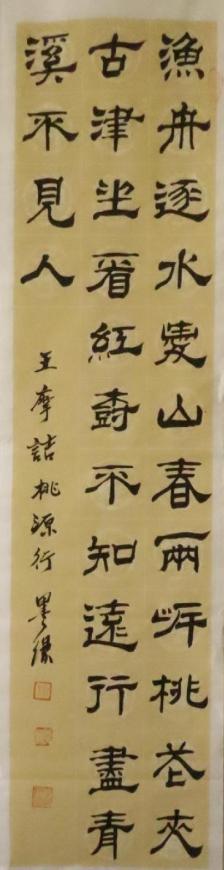 漁舟逐水愛山春兩岍桃花夾
古津坐看紅樹不知遠行盡青
溪不見人
王摩詰桃源行 墨緣